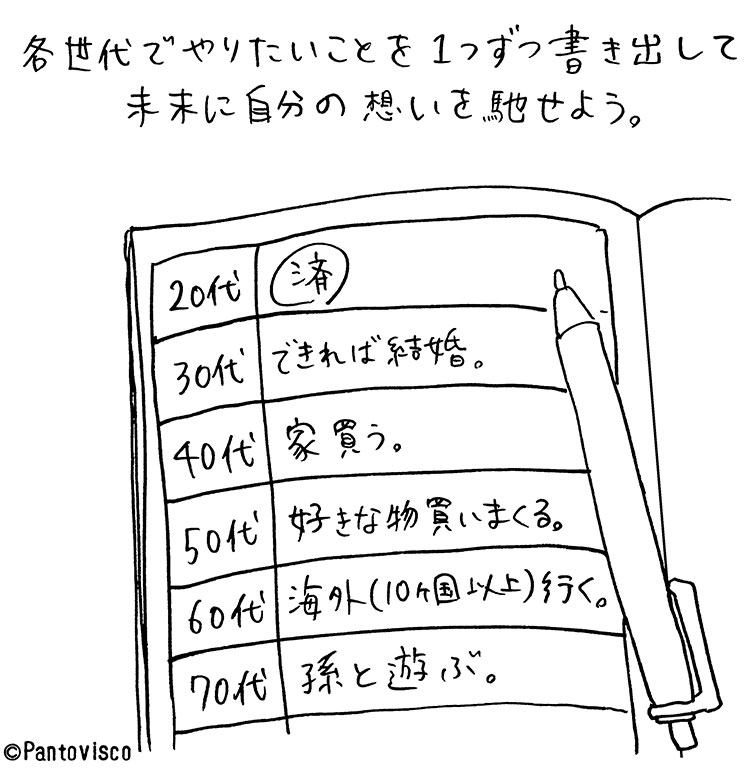 各世代でやりたいことを1つずつ書き出して
未来に自分の想いを馳せよう。
20代 済
30代 できれば結婚。
40代 家買う。
50代 好きな物買いまくる。
60代 海外(10ヶ国以上)行く。
70代 孫と遊ぶ。
©Pantovisco